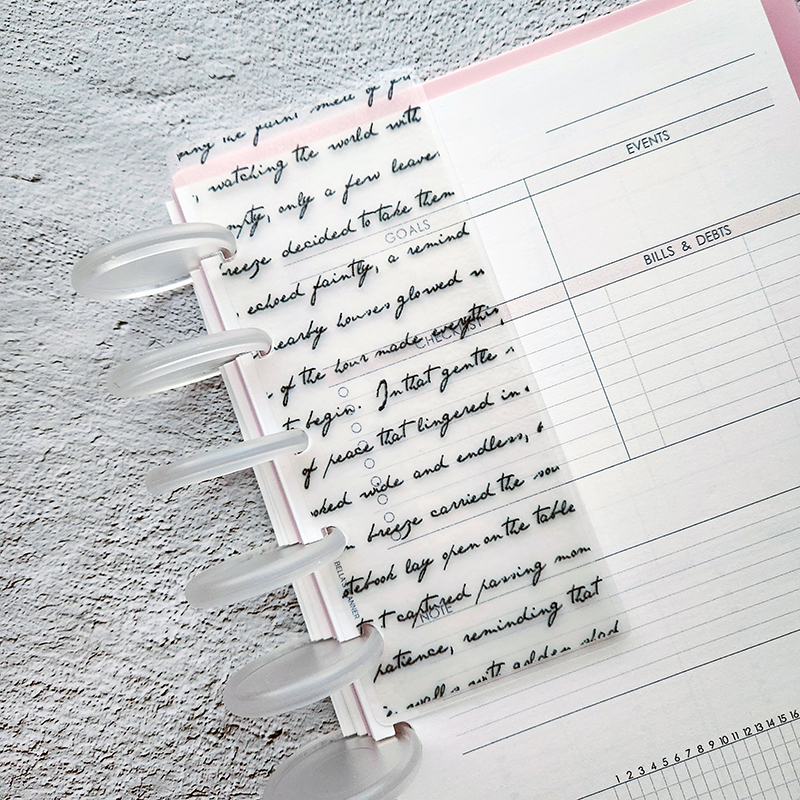 smell of
watching the world with
only a few leaves
breeze decided to take them
echoed faintly, a remind
nearby houses glowed
of the hour made everything
begin. In that gentle
of peace that lingered in
wide and endless,
breeze carried the sou
notebook lay open on the table
captured passing mom
patience, reminding that
with golden
GOALS
CHECKLIST
NOTE
EVENTS
BILLS & DEBTS
1 2 3 4 5 6 7 8 9 10 11 12 13 14 15 16